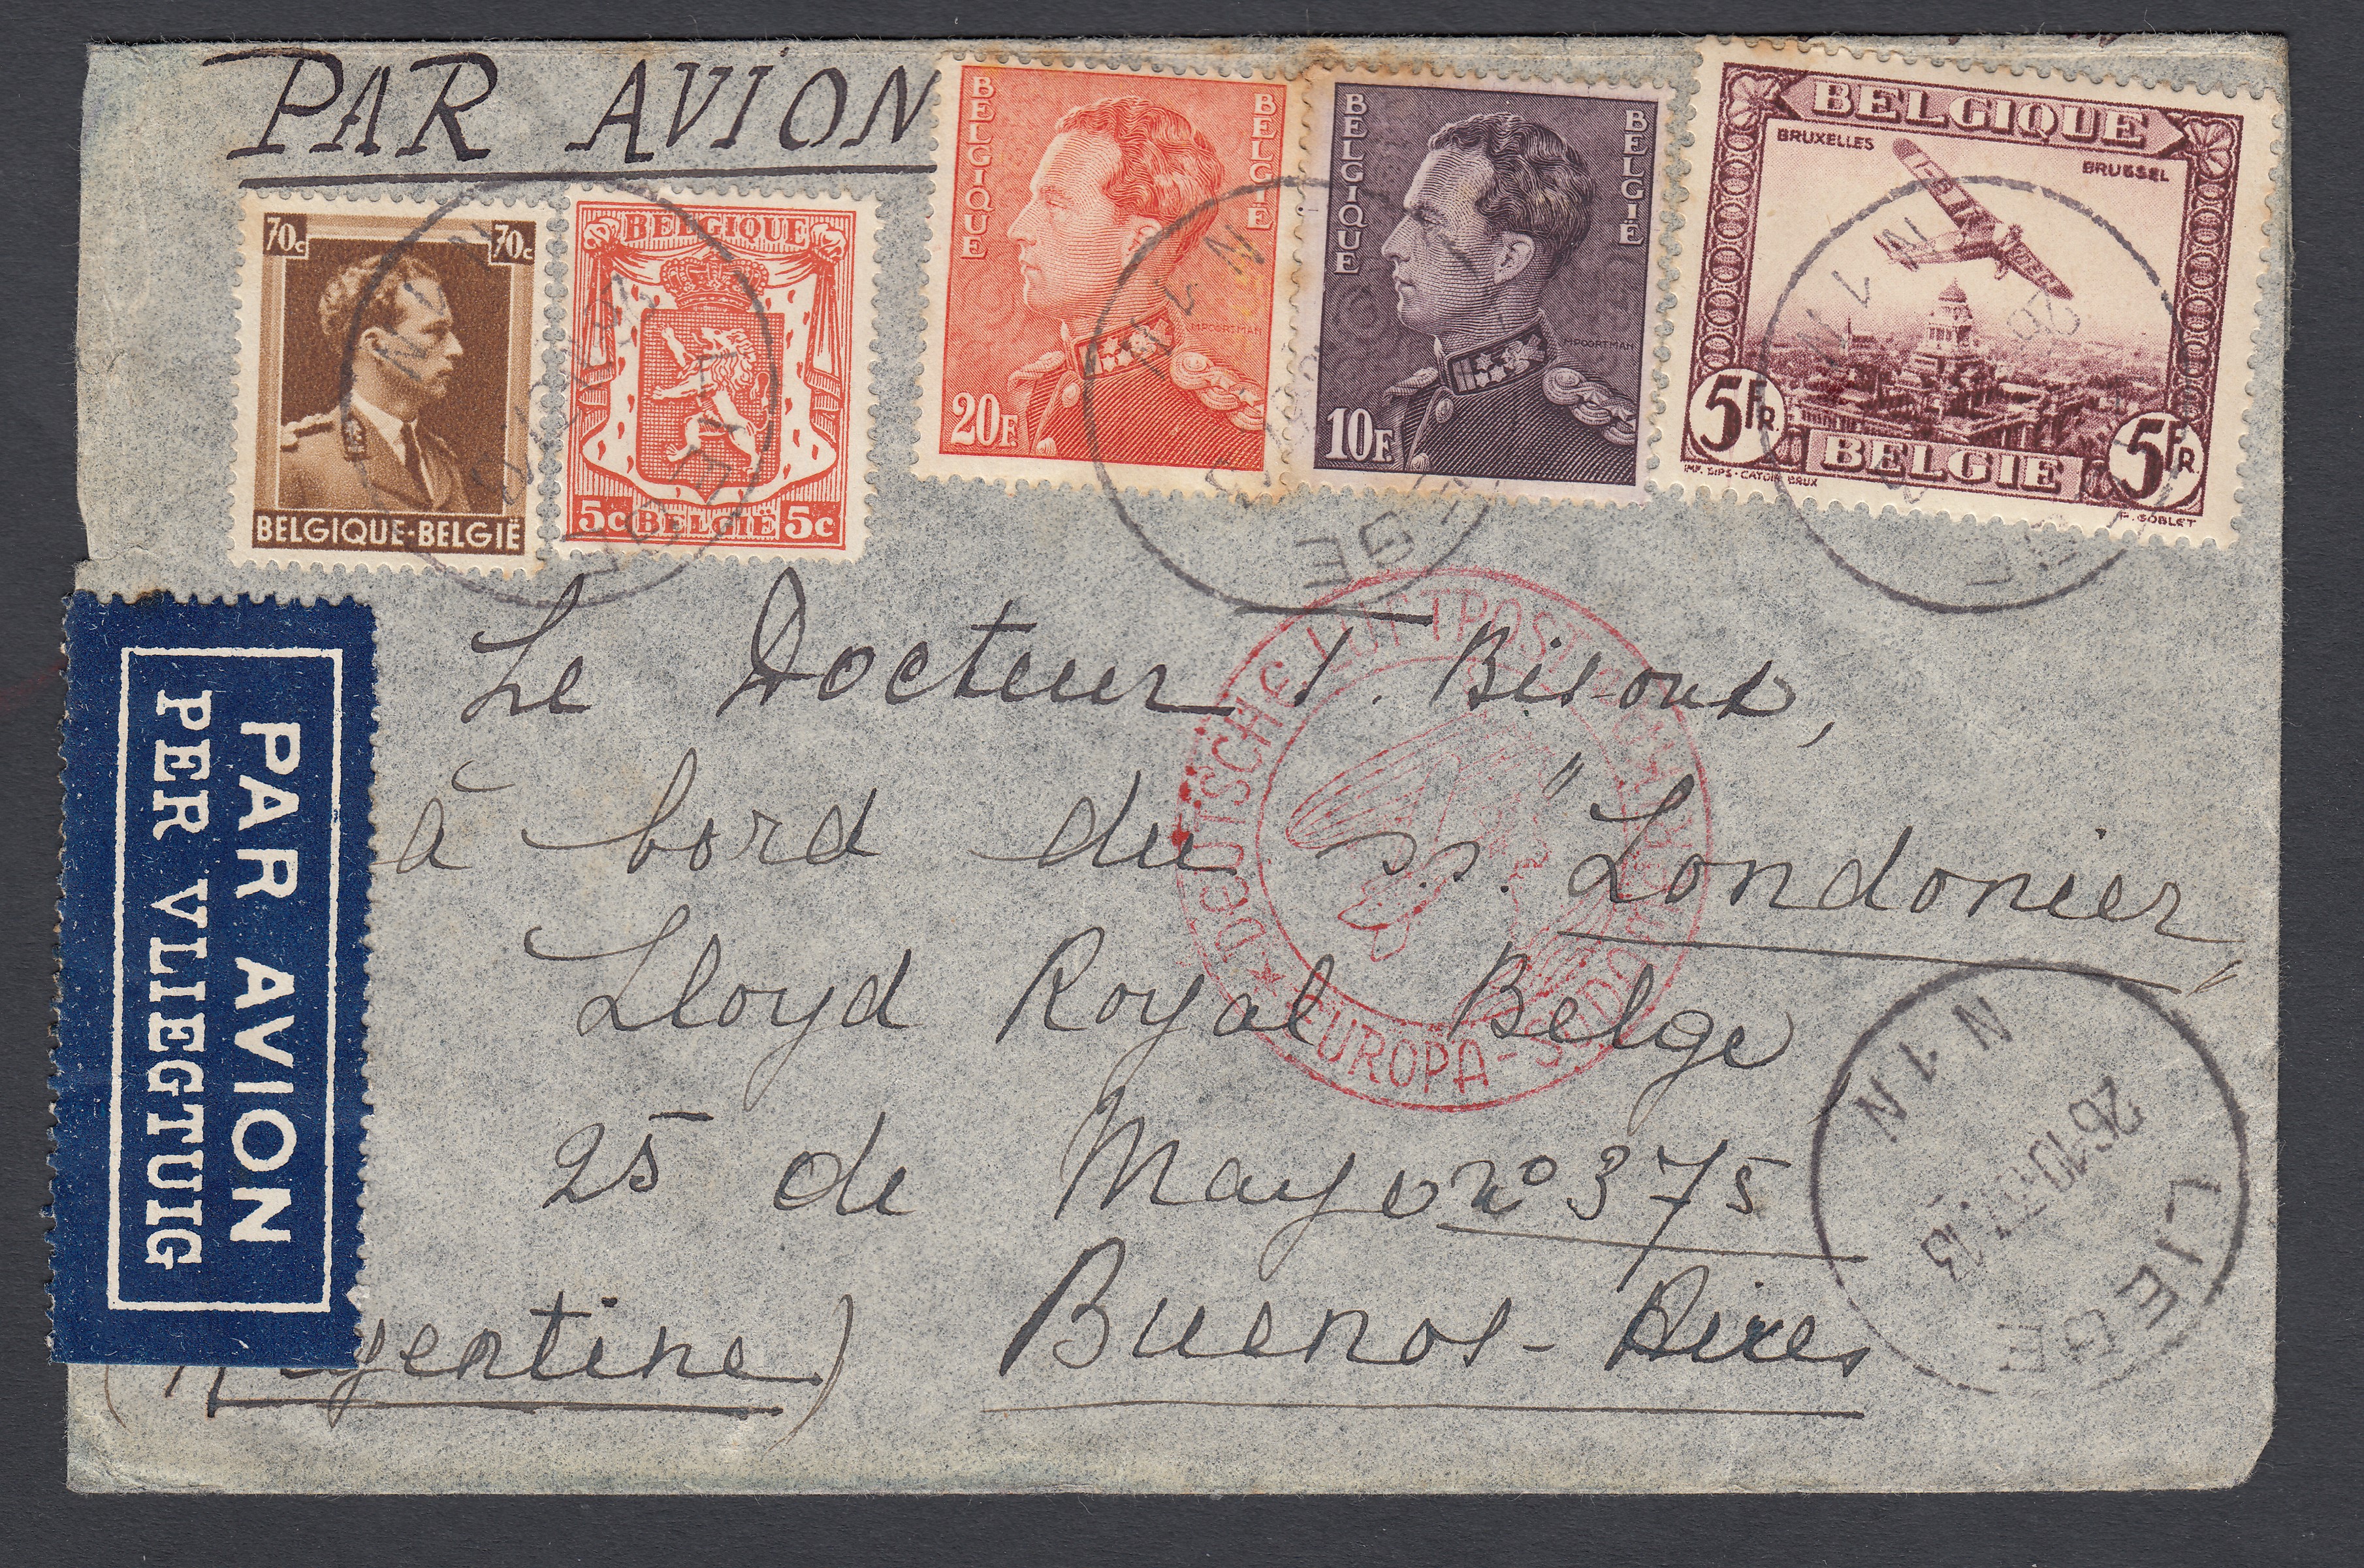 PAR AVION
70c 70c
BELGIQUE-BELGIË
BELGIQUE
5c BELGIË 5c
BELGIQUE BELGIË
MPOORTMAN
20F.
BELGIQUE BELGIË
MPOORTMAN
10F.
BELGIQUE
BRUXELLES
BRUSSEL
5FR. 5FR.
BELGIE
IMP. DIPS-CATOIR BRUX
F. GOBLET
N 1 N
N 1 N
N 1 N
PAR AVION
PER VLIEGTUIG
Le Docteur T.
à bord du s.s. "Londonier"
Lloyd Royal Belge
25 de Mayo no 375
Buenos-Aires
(Argentine)
DEUTSCHE LUFTPOST
EUROPA-SÜDAMERIKA
N 1 N
26.10 13
LIEGE